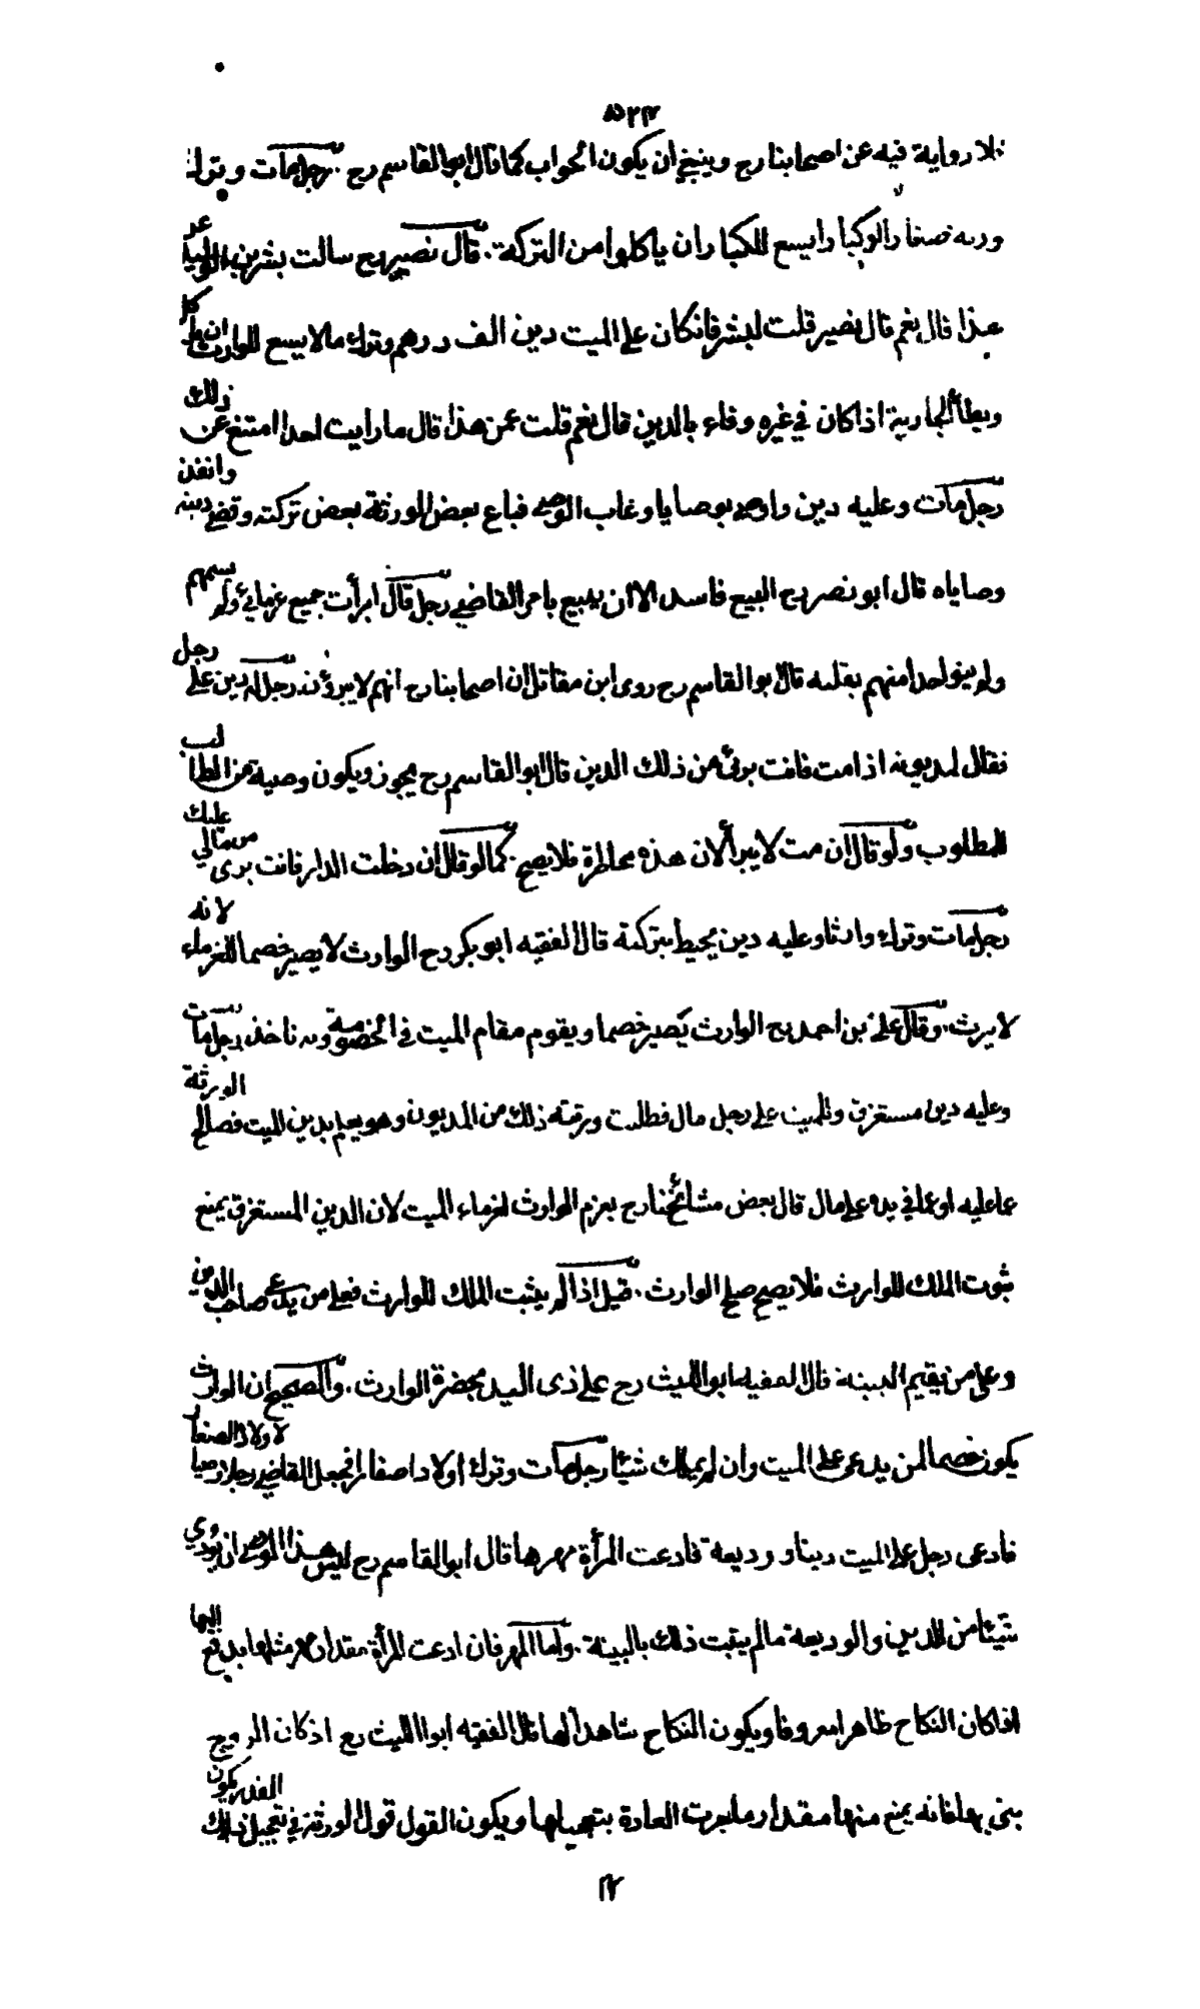 ٥٢٣
فلا رواية فيه عن اصحابنا رح وينبغي ان يكون الجواب كما قال ابو القاسم رح . رجل مات وترك
ورثة صغارا وكبارا يسع للكبار ان ياكلوا من التركة . قال نصير رح سالت بشر بن الوليد عن
هذا قال نعم قال نصير قلت لبشر فان كان على الميت دين الف درهم وترك مالا يسع للوارث ان ياكل
ويطأ الجارية اذا كان في غيره وفاء بالدين قال نعم قلت عمن هذا قال ما رايت احدا امتنع عن ذلك
رجل مات وعليه دين واوصى بوصايا وغاب الوصي فباع بعض الورثة بعض تركته وقضى دينه وانفذ
وصاياه قال ابو نصر رح البيع فاسد الا ان يبيع بامر القاضي رجل قال ابرأت جميع غرمائي ولم يسمهم
ولم ينو احدا منهم بقلبه قال ابو القاسم رح روى ابن مقاتل ان اصحابنا رح انهم لا يبرؤن رجل له دين على رجل
فقال لمديونه اذا مت فانت برئ من ذلك الدين قال ابو القاسم رح يجوز ويكون وصية من الطالب
للمطلوب ولو قال ان مت لا يبرأ لان هذه مخاطرة فلا يصح . كما لو قال ان دخلت الدار فانت برى من مالي عليك
رجل مات وترك وارثا وعليه دين يحيط بتركته قال الفقيه ابو بكر رح الوارث لا يصير خصما للغرماء لانه
لا يرث . وقال علي بن احمد رح الوارث يصير خصما ويقوم مقام الميت في الخصومة وبه ناخذ رجل مات
وعليه دين مستغرق وللميت على رجل مال فطلبت ورثته ذلك من المديون وهو يعلم بدين الميت فصالح الورثة
عما عليه او عما في يده على مال قال بعض مشائخنا رح يغرم الوارث لغرماء الميت لان الدين المستغرق يمنع
ثبوت الملك للوارث فلا يصح صلح الوارث . قيل اذا لم يثبت الملك للوارث فعلى من يدعي صاحب الدين
وعلى من يقيم البينة قال الفقيه ابو الليث رح على ذى اليد بحضرة الوارث . والصحيح ان الوارث
يكون خصما لمن يدعى على الميت وان لم يملك شيئا رجل مات وترك اولادا صغارا فجعل القاضي رجلا وصيا لاولاد الصغار
فادعى رجل على الميت دينا و وديعة فادعت المرأة مهرها قال ابو القاسم رح ليس هذا الوصي ان يؤدي
شيئا من الدين والوديعة مالم يثبت ذلك بالبينة . واما المهر فان ادعت المرأة مقدار مهر مثلها يدفع اليها
اذا كان النكاح ظاهرا معروفا ويكون النكاح شاهدا لها قال الفقيه ابو الليث رح اذ كان الزوج
بنى بها فانه يمنع منها مقدار ما جرت العادة بتعجيلها ويكون القول قول الورثة في تعجيل ذلك القدر يكون